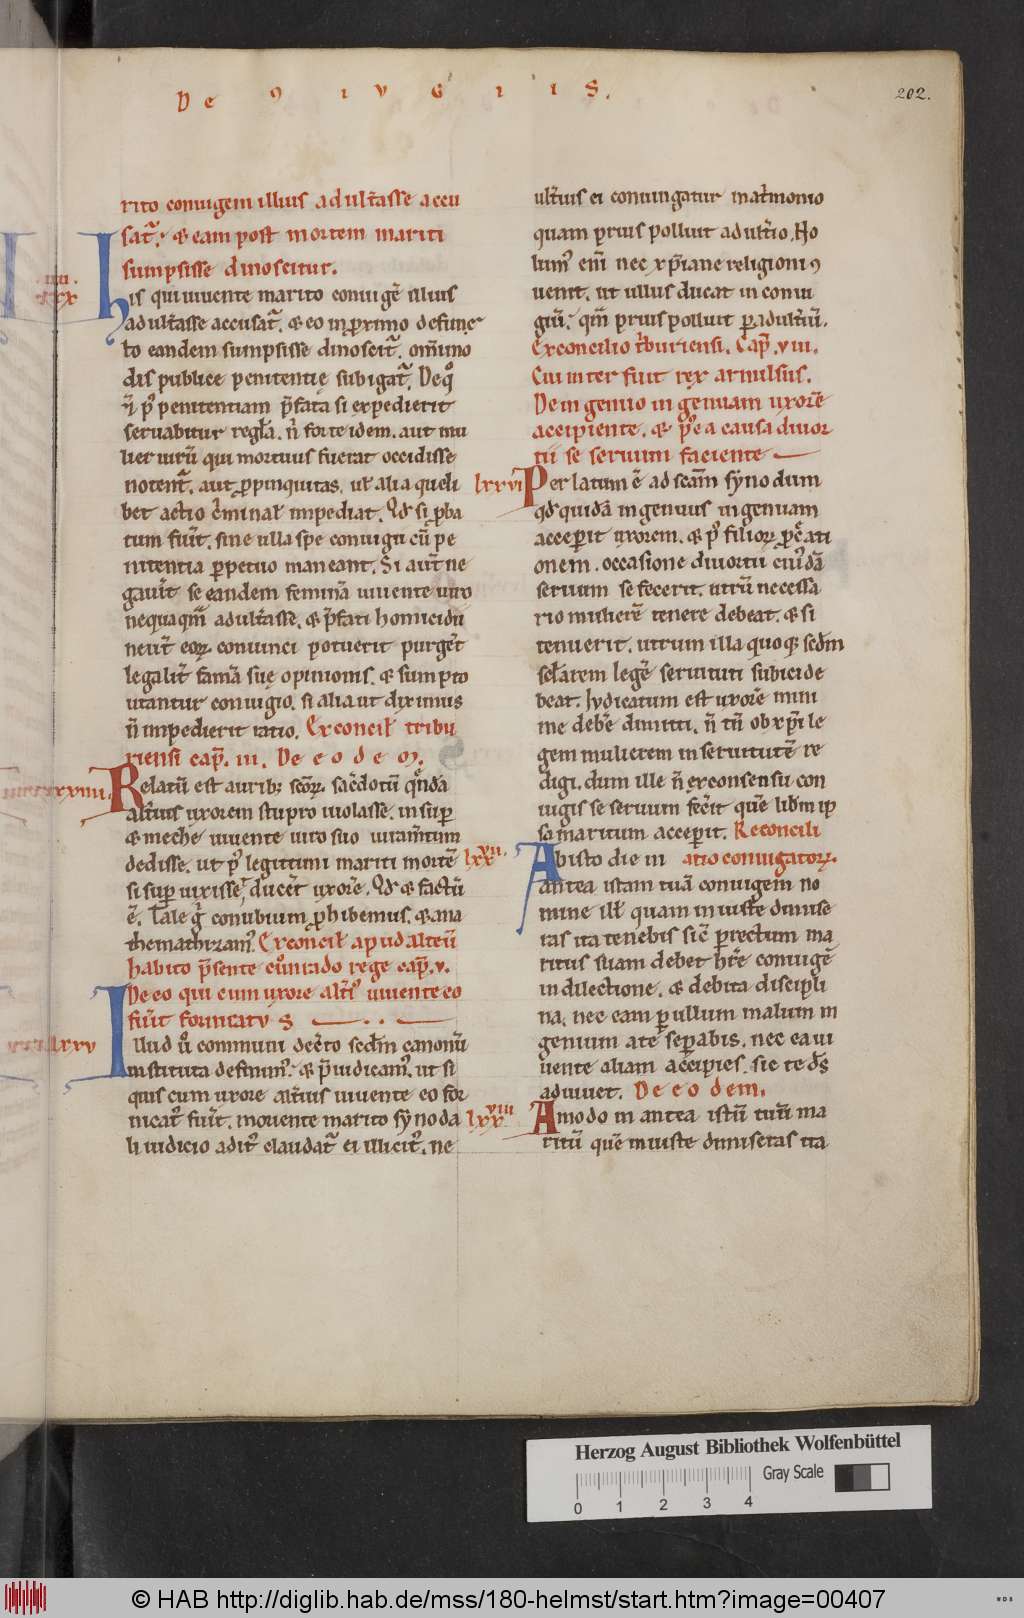 De ꝯ i v G i i S.
202.
rito coniugem illius adult̃asse accu
sat᷑. & eam post mortem mariti
sumpsisse dinoscitur.
his qui uiuente marito coniugẽ illius
adult̃asse accusat᷑. & eo in proximo defunc
to eandem sumpsisse dinoscit᷑. om̃imo
dis publice penitentię subigat᷑. De q°
& p' penitentiam p̃fata si expedierit
seruabitur regła. ñ forte idem. aut mu
lier uirũ qui mortuus fuerat occidisse
notent᷑. aut ꝓpinquitas. uł alia queli
bet actio c̃minał impediat. Qd si ꝓba
tum fuit̃. sine ulla spe coniugii cũ pe
nitentia ꝑpetuo maneant. Si aut̃ ne
gauit̃ se eandem feminã uiuente uiro
nequaqm̃ adult̃asse. & p̃fati homicidii
neut̃ eoꝝ conuinci potuerit purget̃
legalit̃ famã suę opinionis. & sumpto
utantur coniugio. si alia ut diximus
ñ impedierit ratio. Ex concił tribu
riensi cap̃. iii. De e o d e m.
lxxiiii
Relatũ est aurib; scõꝝ sac̃dotũ qnda
alt̃ius uxorem stupro uiolasse. insuꝑ
& meche uiuente uiro suo iuram̃tum
dedisse. ut p' legitimi mariti mortẽ
si supuixisset, ducet̃ uxorẽ. Qd & factũ
ẽ. Tale g̃ conubium ꝓhibemus. & ana
thematizam'. Ex concił apud alteũ
habito p̃sente cuonrado rege cap̃. v.
De eo qui cum uxore alt̃i' uiuente eo
fuit̃ fornicatuS
lxxv
Illud ů communi dec̃to sedm̃ canonũ
instituta definim'. & p̃iudicam'. ut si
quis cum uxore alt̃ius uiuente eo for
nicat' fuit̃. moriente marito synoda
li iudicio adit' claudat᷑ ei illicit'. ne
ult̃ius ei coniungatur mat̃monio
quam prius polluit adult̃io. No
lum' enĩ nec xp̃iane religioni ꝯ
uenit. ut ullus ducat in coniu
giũ. qm̃ prius polluit ꝑ adult̃iũ.
Ex concilio t̃buriensi. Cap̃. viii.
Cui interfuit rex arnulfus.
De ingenuo ingenuam uxorẽ
accipiente. & p' ea causa diuor
tii se seruum faciente
lxxvi
Perlatum ẽ ad scãm synodum
qd quidã ingenuus ingenuam
acceperit uxorem. & p' filioꝝ ꝓc̃ati
onem. occasione diuortii cui'dã
seruum se fecerit. utrũ necessa
rio mulierẽ tenere debeat. & si
tenuerit. utrum illa quoq; sedm̃
sełarem legẽ seruituti subici de
beat. Iudicatum est uxorẽ mini
me debẽ dimitti. ñ tñ ob xp̃i le
gem mulierem in seruitutẽ re
digi. dum ille ñ ex consensu con
iugis se seruum fec̃it quẽ libm̃ ip
sa maritum acceperit. Reconcili
atio coniugatorꝝ.
lxxvii.
Ab isto die in
antea istam tuã coniugem no
mine ill' quam iniuste dimise
ras ita tenebis sic̃ ꝑ rectum ma
ritus suam debet hr̃e coniugẽ
in dilectione. & debita discipli
na. nec eam ꝑ ullum malum in
genium a te seꝑabis. nec ea ui
uente aliam accipies. sic te ds̃
adiuuet. De e o dem.
lxxviii
Amodo in antea istũ tuũ ma
ritũ quẽ iniuste dimiseras ita
Herzog August Bibliothek Wolfenbüttel
Gray Scale
0 1 2 3 4
© HAB http://diglib.hab.de/mss/180-helmst/start.htm?image=00407